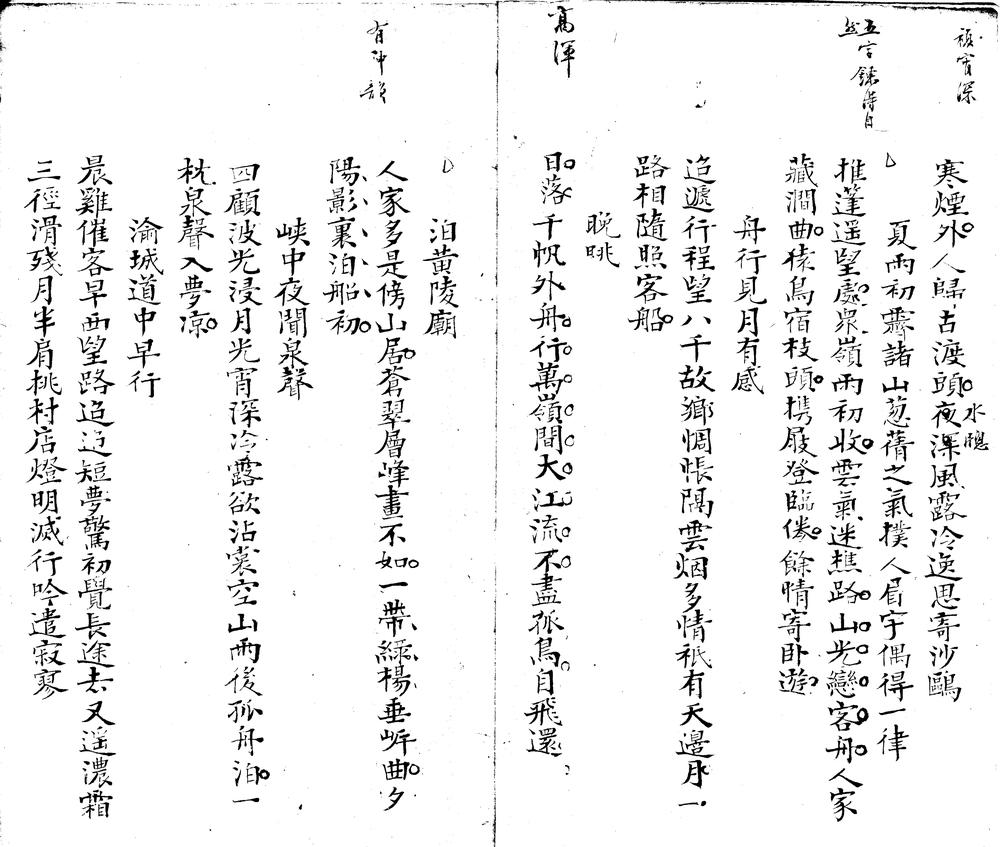 寒煙外人歸古渡頭夜深風露冷逸思寄沙鷗
水驄
夏雨初霽諸山蔥蒨之氣撲人眉宇偶得一律
推蓬遥望處衆嶺雨初收雲氣迷樵路山光戀客舟人家
五字鍊得自然
藏澗曲猿鳥宿枝頭携屐登臨倦餘情寄卧遊
舟行見月有感
迢遞行程望八千故鄉惆悵隔雲烟多情祇有天邊月一
路相隨照客船
晚眺
高渾
日落千帆外舟行萬嶺間大江流不盡孤鳥自飛還
泊黃陵廟
人家多是傍山居蒼翠層峰畫不如一帶綠楊垂岍曲夕
有神韻
陽影裏泊船初
峽中夜聞泉聲
四顧波光浸月光宵深冷露欲沾裳空山雨後孤舟泊一
枕泉聲入夢凉
渝城道中早行
晨雞催客早西望路迢迢短夢驚初覺長途去又遥濃霜
三徑滑殘月半肩挑村店燈明滅行吟遣寂寥